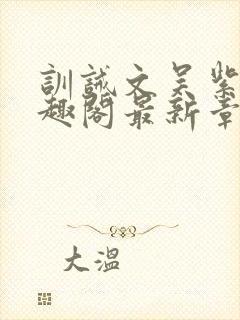 訓誡文吴紫
趣閣最新章
大溫